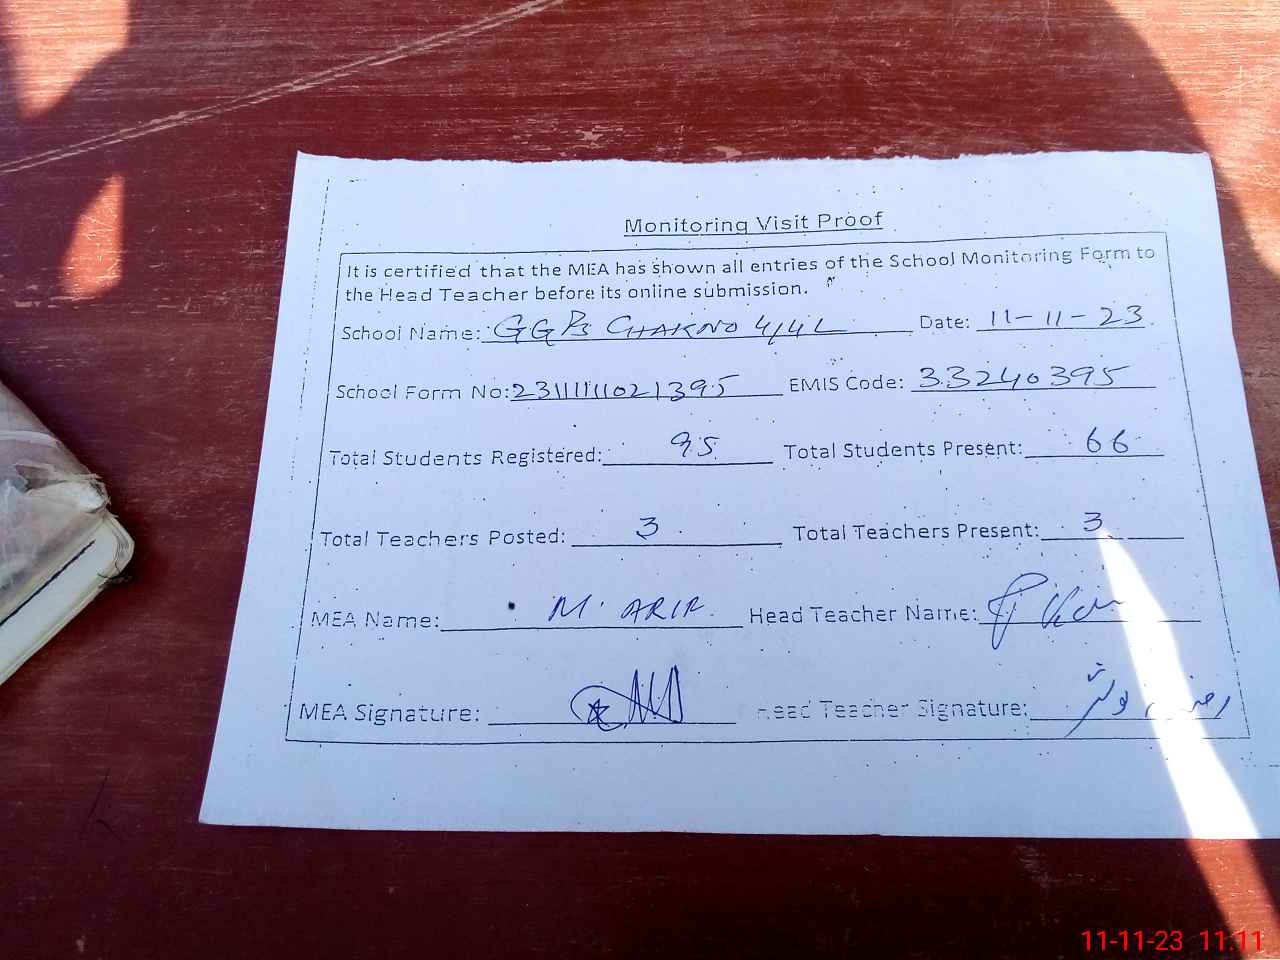 Monitoring Visit Proof
It is certified that the MEA has shown all entries of the School Monitoring Form to
the Head Teacher before its online submission.
School Name: GGPS CHAKNO 4/4L Date: 11-11-23
School Form No: EMIS Code: 33240395
Total Students Registered: 95 Total Students Present: 66
Total Teachers Posted: 3 Total Teachers Present: 3
MEA Name: M. ARIF. Head Teacher Name:
MEA Signature: Head Teacher Signature:
11-11-23 11:11